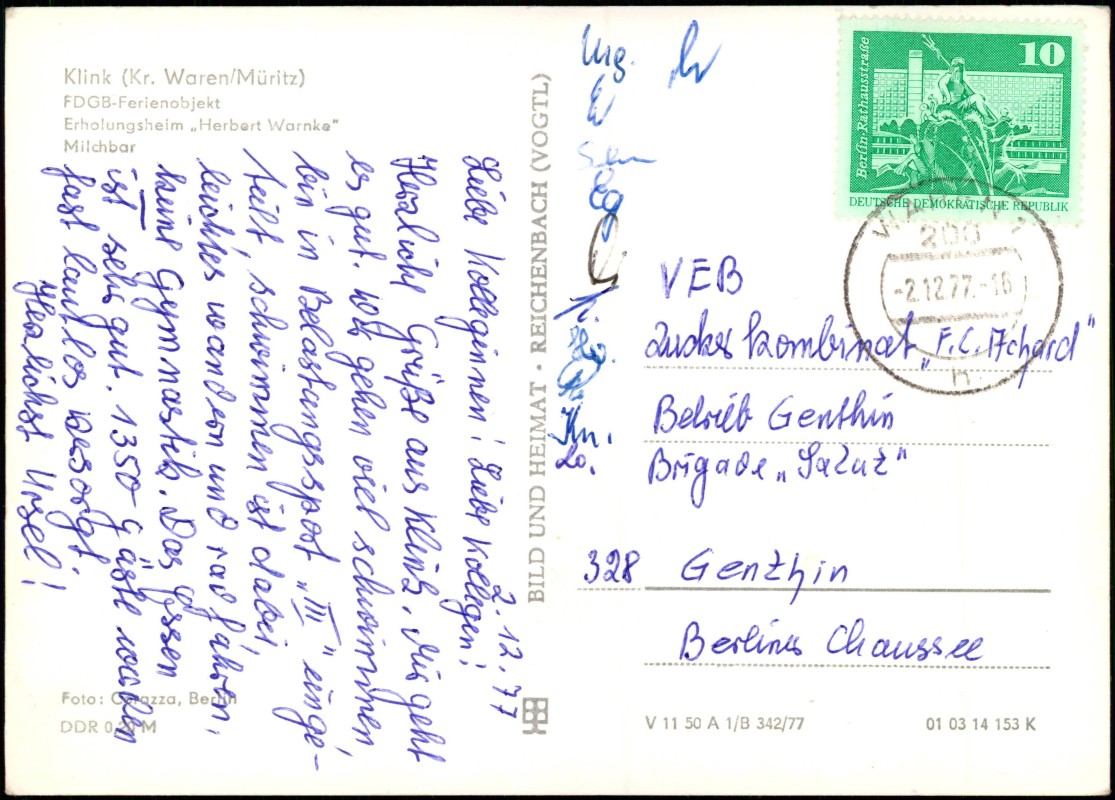 Klink (Kr. Waren/Müritz)
FDGB-Ferienobjekt
Erholungsheim „Herbert Warnke"
Milchbar
2.12.77
Liebe Kolleginnen! Liebe Kollegen!
Herzliche Grüße aus Klink. Mir geht
es gut. Wir gehen viel schwimmen,
bin in Belastungsspost „III" einge-
teilt, schwimmen ist dabei,
leichtes wandern und rad fahren,
keine Gymnastik. Das Essen
ist sehr gut. 1350 Gäste werden
fast lautlos versorgt.
Herzlichst Ursel!
Foto: Corazza, Berlin
DDR 0,20 M
BILD UND HEIMAT · REICHENBACH (VOGTL)
Kn.
Lo.
10
Berlin-Rathausstraße
DEUTSCHE DEMOKRATISCHE REPUBLIK
WAREN 1
206
-2.12.77.-16
VEB
Zucker Kombinat „F.C. Achard"
Betrieb Genthin
Brigade „Salut"
328 Genthin
Berliner Chaussee
V 11 50 A 1/B 342/77
01 03 14 153 K